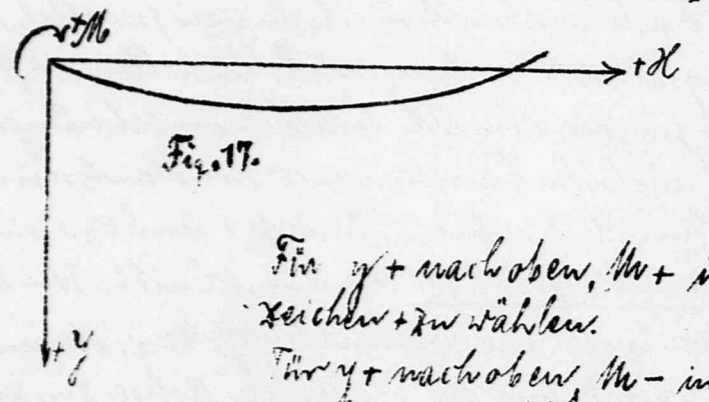 +M
+X
Fig. 17.
Für y + nach oben, M +
zeichen + zu wählen.
+y
Für y + nach oben, M -